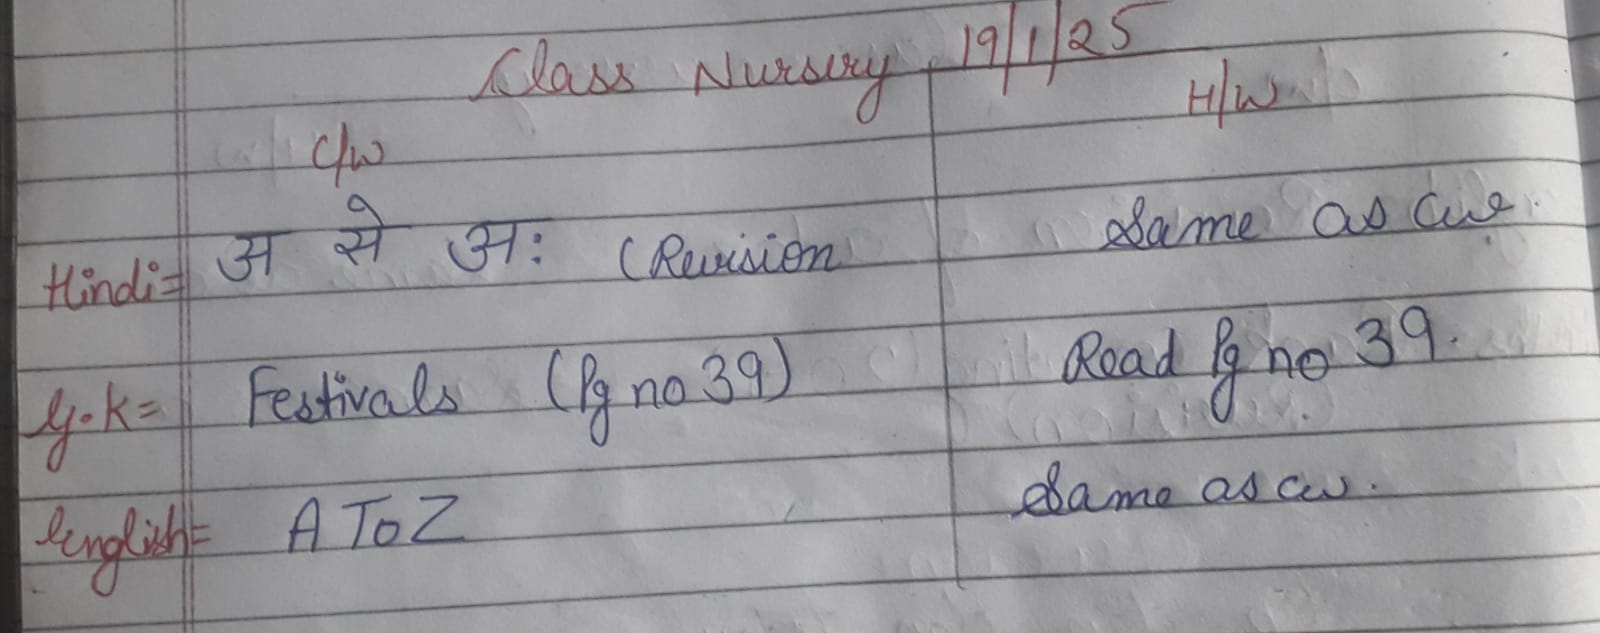 Class Nursery 19/1/25
C/W H/W
Hindi= अ से अः (Revision Same as cw.
G.K= Festivals (Pg no 39) Read Pg no 39.
English= A To Z Same as cw.